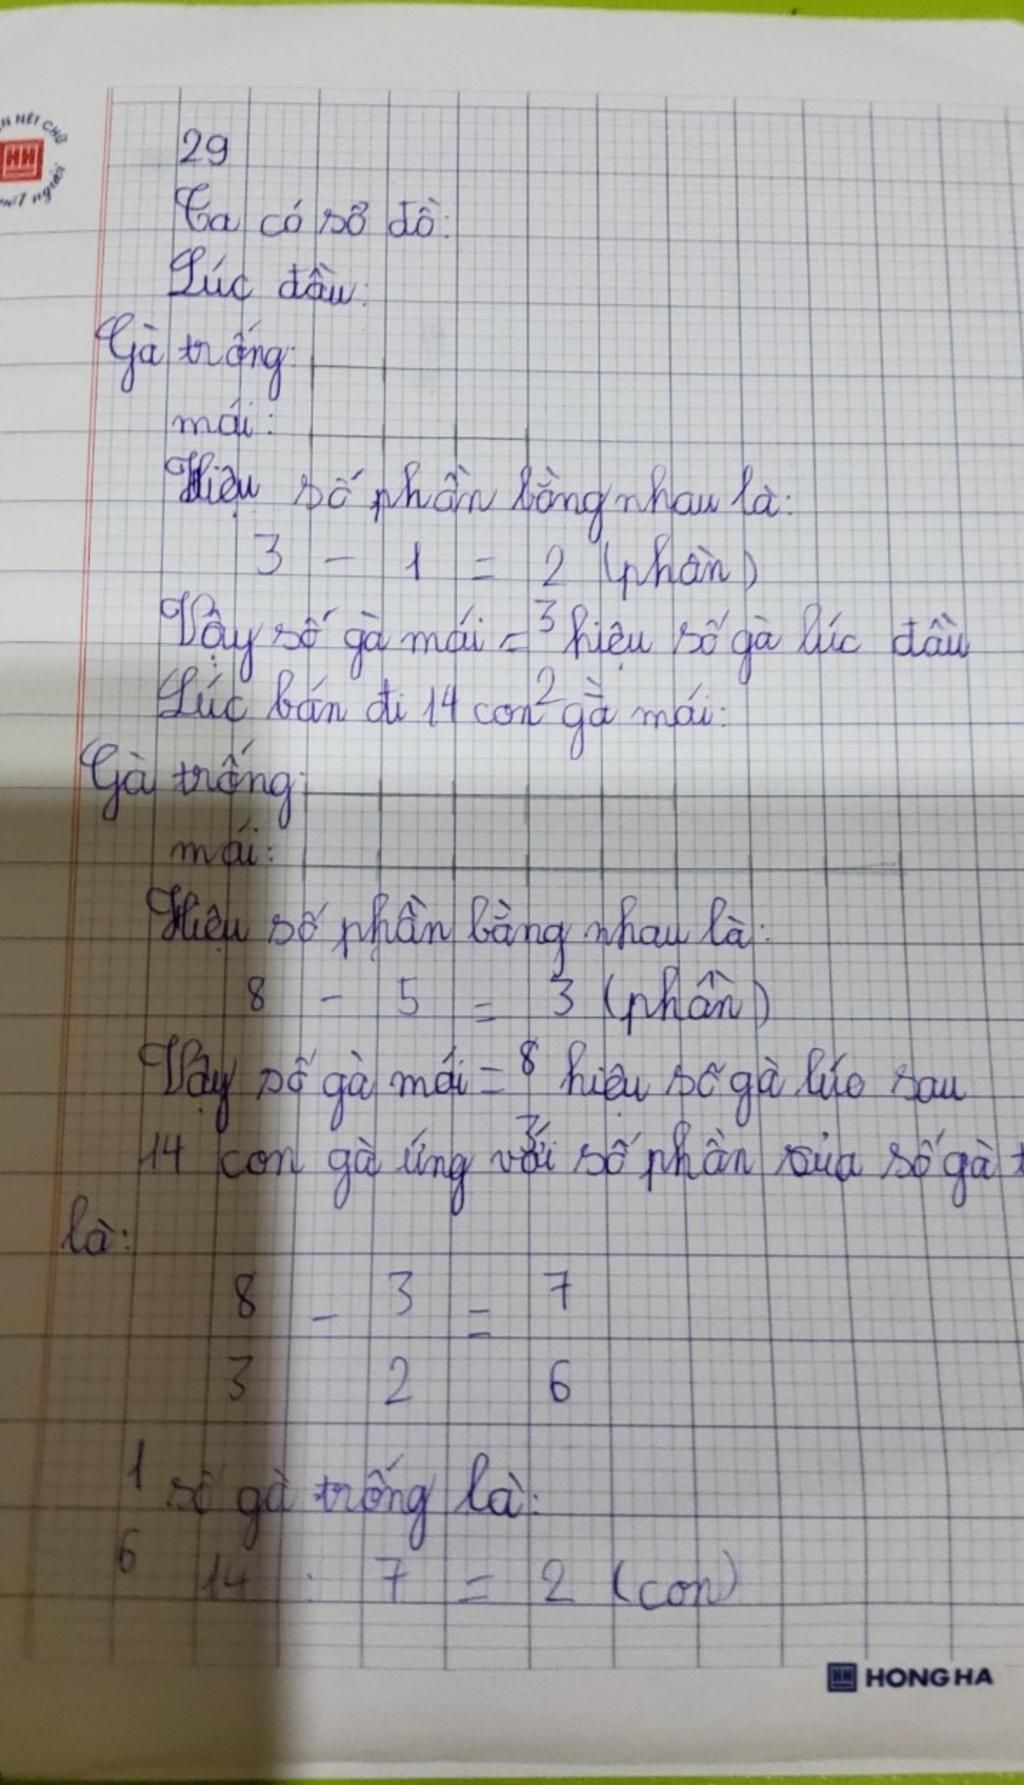 N NÉT CHỮ
HH
nết người
29
Ta có sơ đồ:
Lúc đầu:
Gà trống:
mái:
Hiệu số phần bằng nhau là:
3 - 1 = 2 (phần)
Vậy số gà mái = 3/2 hiệu số gà lúc đầu
Lúc bán đi 14 con gà mái:
Gà trống:
mái:
Hiệu số phần bằng nhau là:
8 - 5 = 3 (phần)
Vậy số gà mái = 8/3 hiệu số gà lúc sau
14 con gà ứng với số phần của số gà t
là:
8/3 - 3/2 = 7/6
1/6 số gà trống là:
14 : 7 = 2 (con)
HH HONG HA